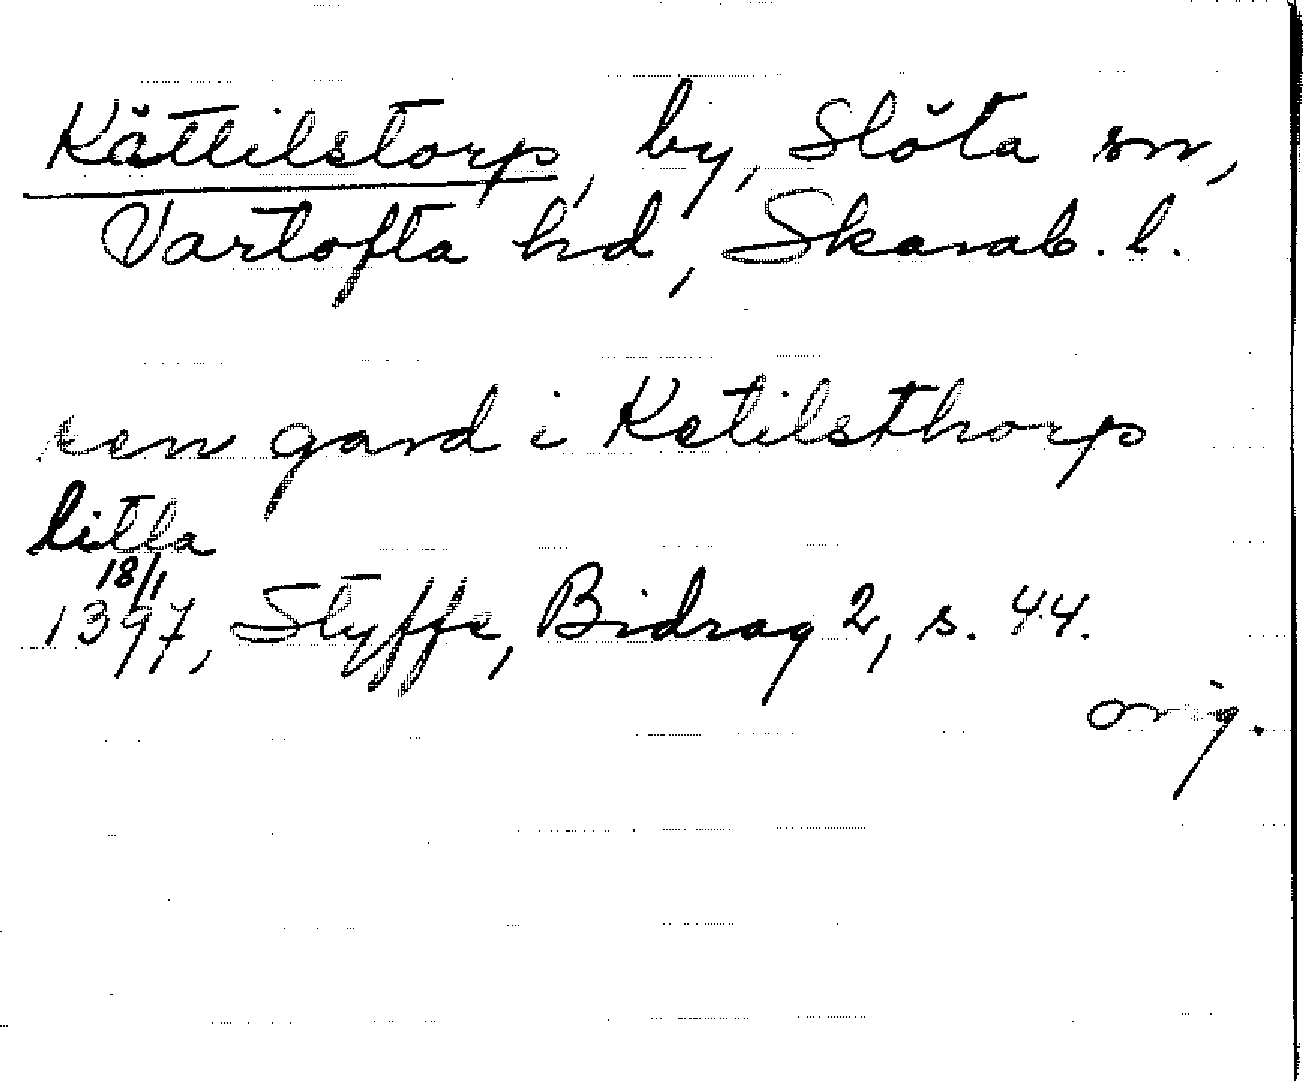 Kättilstorp, by, Slöta sn,
Vartofta hd, Skarab. l.
een gard i Ketilsthorp
litla
18/1
1397, Styffe, Bidrag 2, s. 44.
orig.